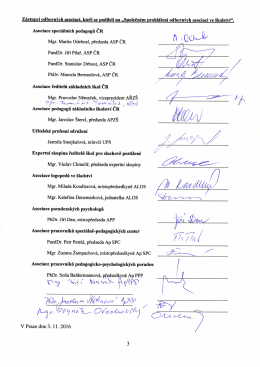 Zástupci odborných asociací, kteří se podíleli na „Společném prohlášení odborných asociací ve školství“.
Asociace speciálních pedagogů ČR
Mgr. Martin Odehnal, předseda ASP ČR
PaedDr. Jiří Pilař, ASP ČR
PaedDr. Stanislav Drbout, ASP ČR
PhDr. Marcela Bernardová, ASP ČR
Asociace ředitelů základních škol ČR
Mgr. Pravoslav Němeček, viceprezident AŘZŠ
Asociace pedagogů základního školství ČR
Mgr. Jaroslav Štercl, předseda APZŠ
Učitelské profesní sdružení
Jarmila Smejkalová, mluvčí UPS
Expertní skupina ředitelů škol pro sluchově postižené
Mgr. Václav Chmelíř, předseda expertní skupiny
Asociace logopedů ve školství
Mgr. Milada Kondlerová, místopředsedkyně ALOS
Mgr. Kateřina Denemarková, jednatelka ALOS
Asociace poradenských psychologů
PhDr. Jiří Dan, místopředseda APP
Jiří Dan
Asociace pracovníků speciálně-pedagogických center
PaedDr. Petr Petráš, předseda Ap SPC
Mgr. Zuzana Žampachová, místopředsedkyně Ap SPC
Asociace pracovníků pedagogicko-psychologických poraden
PhDr. Soňa Baldrmannová, předsedkyně Ap PPP
Mgr. Jiří Novák ApPPP
V Praze dne 3. 11. 2016
3